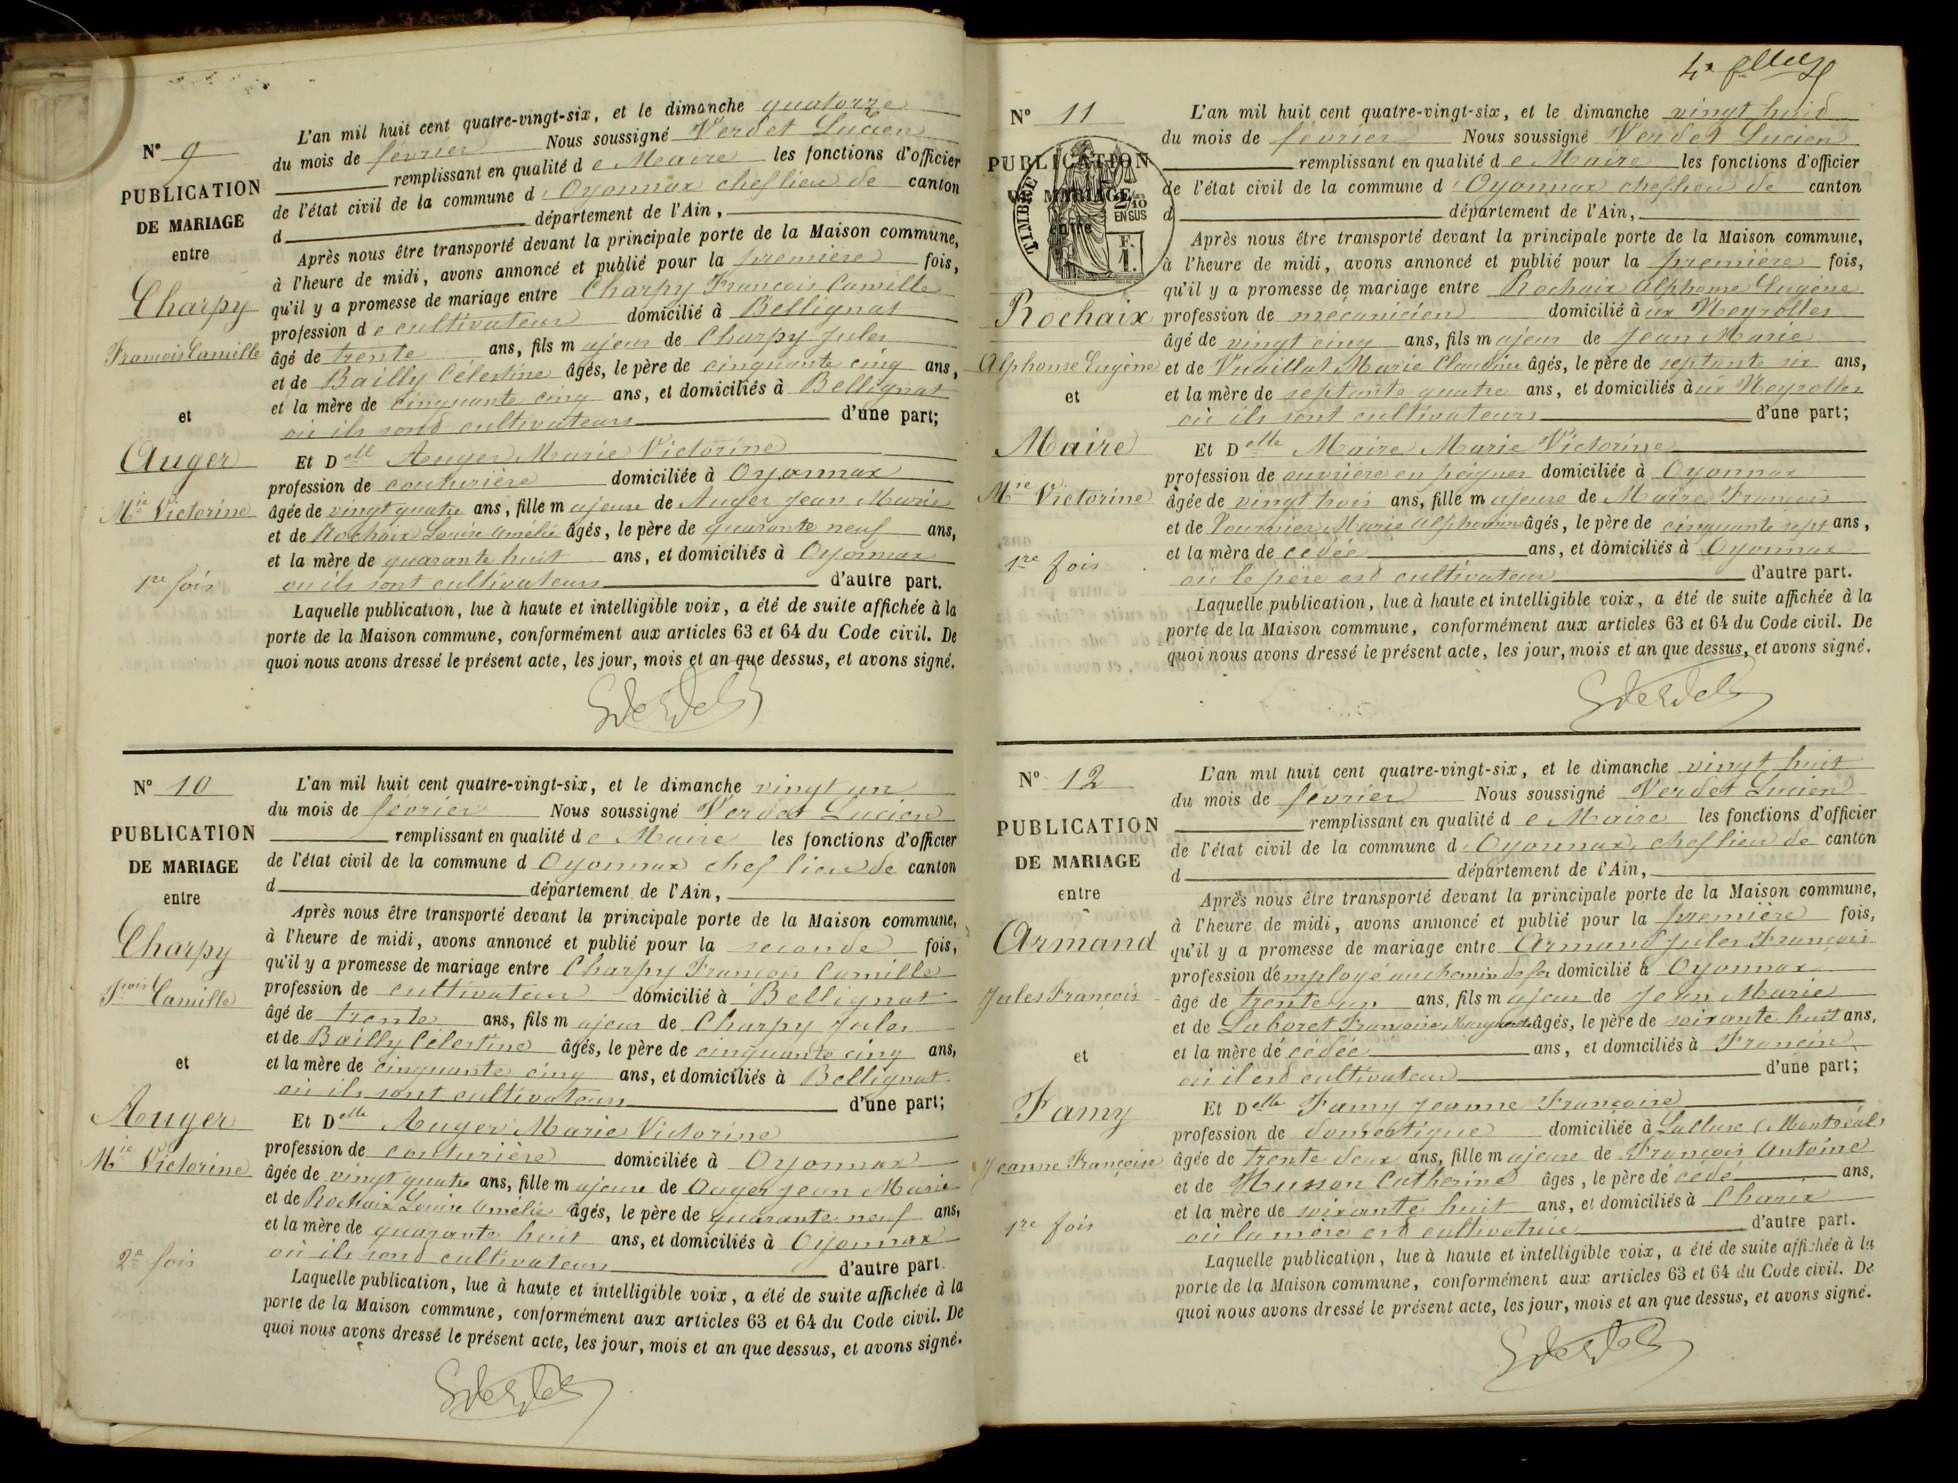 N° 9
PUBLICATION
DE MARIAGE
entre
Charpy
François Camille
et
Auger
Mie Victorine
1re fois
L'an mil huit cent quatre-vingt-six, et le dimanche quatorze
du mois de février Nous soussigné Verdet Lucien
remplissant en qualité de Maire les fonctions d'officier
de l'état civil de la commune d'Oyonnax chef lieu de canton
d département de l'Ain,
Après nous être transporté devant la principale porte de la Maison commune,
à l'heure de midi, avons annoncé et publié pour la première fois,
qu'il y a promesse de mariage entre Charpy François Camille
profession de cultivateur domicilié à Bellignat
âgé de trente ans, fils majeur de Charpy Jules
et de Bailly Célestine âgés, le père de cinquante cinq ans,
et la mère de cinquante cinq ans, et domiciliés à Bellignat
où ils sont cultivateurs d'une part;
Et Delle Auger Marie Victorine
profession de couturière domiciliée à Oyonnax
âgée de vingt quatre ans, fille majeure de Auger Jean Marie
et de Rochaix Louise Amélie âgés, le père de quarante neuf ans,
et la mère de quarante huit ans, et domiciliés à Oyonnax
où ils sont cultivateurs d'autre part.
Laquelle publication, lue à haute et intelligible voix, a été de suite affichée à la
porte de la Maison commune, conformément aux articles 63 et 64 du Code civil. De
quoi nous avons dressé le présent acte, les jour, mois et an que dessus, et avons signé.
N° 10
PUBLICATION
DE MARIAGE
entre
Charpy
Fçois Camille
et
Auger
Mie Victorine
2e fois
L'an mil huit cent quatre-vingt-six, et le dimanche vingt un
du mois de février Nous soussigné Verdet Lucien
remplissant en qualité de Maire les fonctions d'officier
de l'état civil de la commune d Oyonnax chef lieu de canton
d département de l'Ain,
Après nous être transporté devant la principale porte de la Maison commune,
à l'heure de midi, avons annoncé et publié pour la seconde fois,
qu'il y a promesse de mariage entre Charpy François Camille
profession de cultivateur domicilié à Bellignat
âgé de trente ans, fils majeur de Charpy Jules
et de Bailly Célestine âgés, le père de cinquante cinq ans,
et la mère de cinquante cinq ans, et domiciliés à Bellignat
où ils sont cultivateurs d'une part;
Et Delle Auger Marie Victorine
profession de couturière domiciliée à Oyonnax
âgée de vingt quatre ans, fille majeure de Auger Jean Marie
et de Rochaix Louise Amélie âgés, le père de quarante neuf ans,
et la mère de quarante huit ans, et domiciliés à Oyonnax
où ils sont cultivateurs d'autre part.
Laquelle publication, lue à haute et intelligible voix, a été de suite affichée à la
porte de la Maison commune, conformément aux articles 63 et 64 du Code civil. De
quoi nous avons dressé le présent acte, les jour, mois et an que dessus, et avons signé.
N° 11
PUBLICATION
DE MARIAGE
entre
TIMBRE
2/10
EN SUS
F.
1.
Rochaix
Alphonse Eugène
et
Maire
Mie Victorine
1re fois
L'an mil huit cent quatre-vingt-six, et le dimanche vingt huit
du mois de février Nous soussigné Verdet Lucien
remplissant en qualité de Maire les fonctions d'officier
de l'état civil de la commune d'Oyonnax chef lieu de canton
d département de l'Ain,
Après nous être transporté devant la principale porte de la Maison commune,
à l'heure de midi, avons annoncé et publié pour la première fois,
qu'il y a promesse de mariage entre Rochaix Alphonse Eugène
profession de mécanicien domicilié à ux Neyrolles
âgé de vingt cinq ans, fils majeur de Jean Marie
et de Vuaillat Marie Claudine âgés, le père de septante six ans,
et la mère de septante quatre ans, et domiciliés à ux Neyrolles
où ils sont cultivateurs d'une part;
Et Delle Maire Marie Victorine
profession de ouvrière en peignes domiciliée à Oyonnax
âgée de vingt trois ans, fille majeure de Maire François
et de Tournier Marie Alphonsine âgés, le père de cinquante sept ans,
et la mère de cédée ans, et domiciliés à Oyonnax
où le père est cultivateur d'autre part.
Laquelle publication, lue à haute et intelligible voix, a été de suite affichée à la
porte de la Maison commune, conformément aux articles 63 et 64 du Code civil. De
quoi nous avons dressé le présent acte, les jour, mois et an que dessus, et avons signé.
N° 12
PUBLICATION
DE MARIAGE
entre
Armand
Jules François
et
Famy
Jeanne Françoise
1re fois
L'an mil huit cent quatre-vingt-six, et le dimanche vingt huit
du mois de février Nous soussigné Verdet Lucien
remplissant en qualité de Maire les fonctions d'officier
de l'état civil de la commune d'Oyonnax chef lieu de canton
d département de l'Ain,
Après nous être transporté devant la principale porte de la Maison commune,
à l'heure de midi, avons annoncé et publié pour la première fois,
qu'il y a promesse de mariage entre Armand Jules François
profession d'employé au chemin de fer domicilié à Oyonnax
âgé de trente un ans, fils majeur de Jean Marie
et de Laboret Françoise Marguerite âgés, le père de soixante huit ans,
et la mère dé cédée ans, et domiciliés à Francin
où il est cultivateur d'une part;
Et Delle Famy Jeanne Françoise
profession de domestique domiciliée à Lalleyriat Montréal
âgée de trente deux ans, fille majeure de François Antoine
et de Husson Catherine âgés, le père dé cédé ans,
et la mère de soixante huit ans, et domiciliés à Charix
où la mère est cultivatrice d'autre part.
Laquelle publication, lue à haute et intelligible voix, a été de suite affichée à la
porte de la Maison commune, conformément aux articles 63 et 64 du Code civil. De
quoi nous avons dressé le présent acte, les jour, mois et an que dessus, et avons signé.